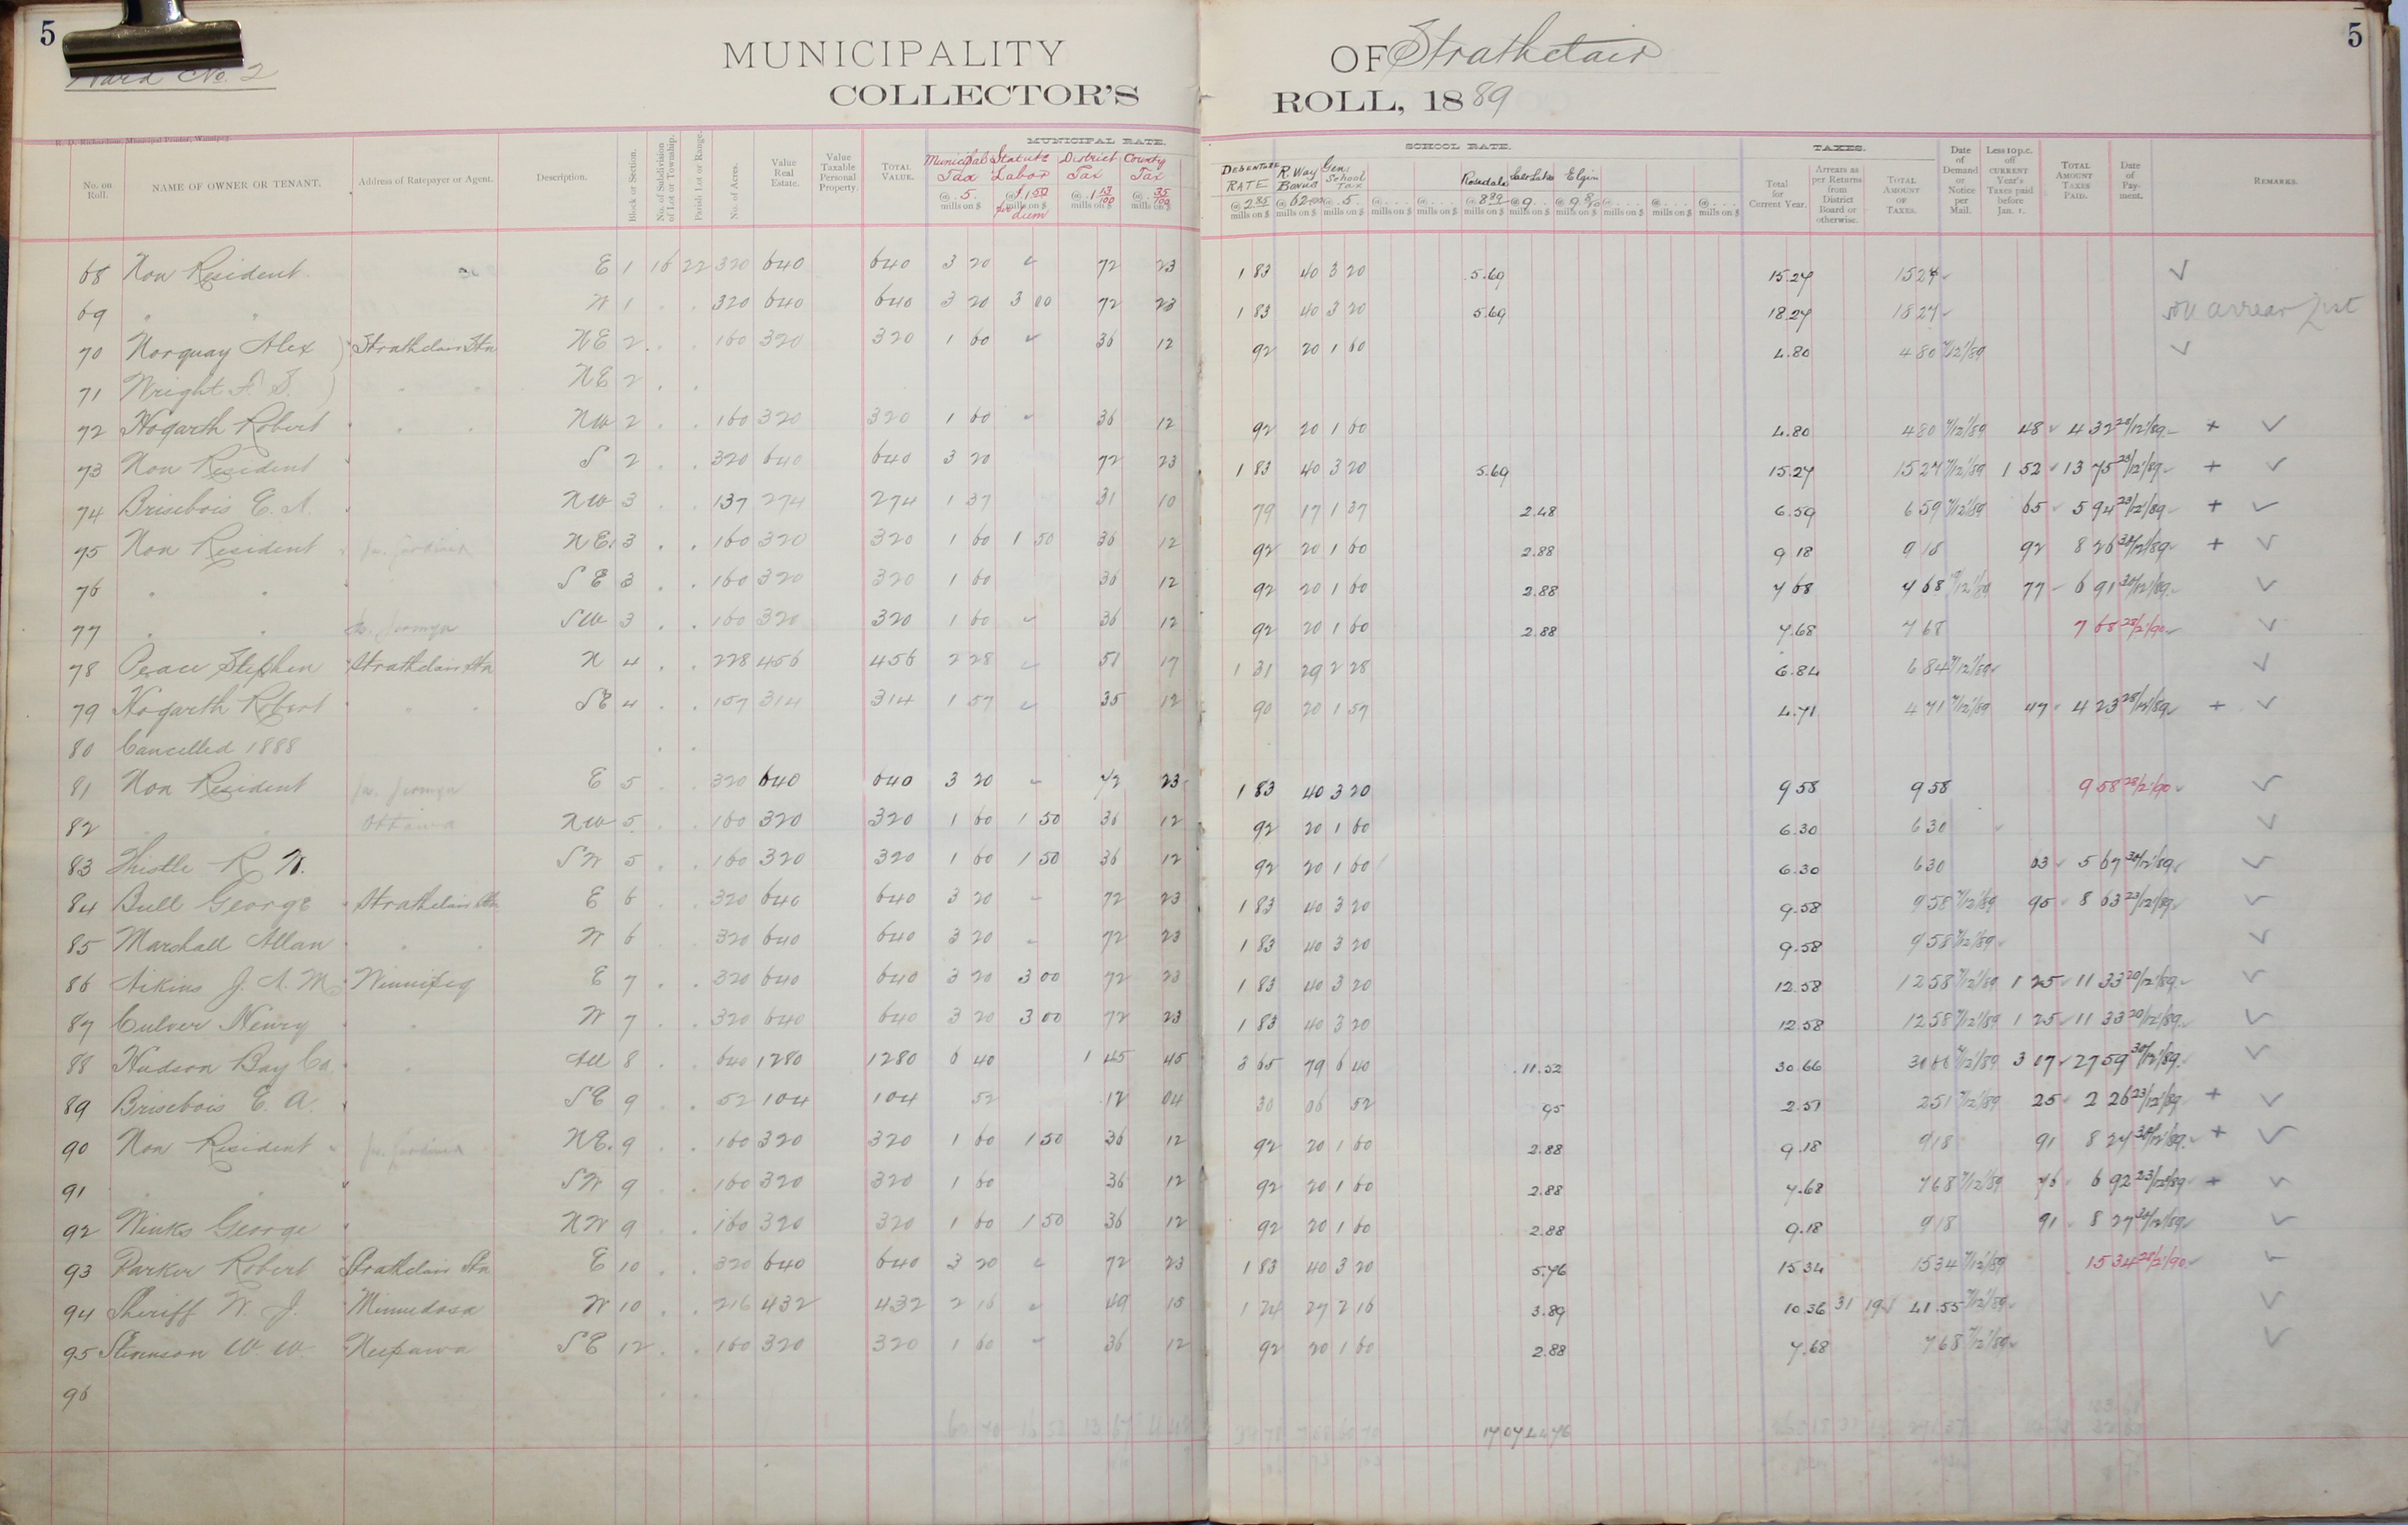 5
Ward No. 2
MUNICIPALITY OF Strathclair
5
COLLECTOR'S ROLL, 1889
R. D. Richardson, Municipal Printer, Winnipeg.
MUNICIPAL RATE. SCHOOL RATE. TAXES.
No. on Roll. NAME OF OWNER OR TENANT. Address of Ratepayer or Agent. Description. Block or Section. No. of Subdivision of Lot or Township. Parish Lot or Range. No. of Acres. Value Real Estate. Value Taxable Personal Property. TOTAL VALUE. Municipal Tax @ .5. mills on $ Statute Labor @ $1 50 mills on $ per diem District Tax @ 1 13/100 mills on $ County Tax @ 35/100 mills on $ DEBENTURE RATE @ 2 85 mills on $ R. Way Bonus @ 62/100 mills on $ Gen. School Tax @ .5. mills on $ @ . . . mills on $ @ . . . mills on $ Rosedale @ 8 89 mills on $ Salt Lake @ 9 . . mills on $ Elgin @ 9 8/10 mills on $ @ . . . mills on $ @ . . . mills on $ @ . . . mills on $ Total for Current Year. Arrears as per Returns from District Board or otherwise. TOTAL AMOUNT OF TAXES. Date of Demand or Notice per Mail. Less 10 p.c. off CURRENT Year's Taxes paid before Jan. 1. TOTAL AMOUNT TAXES PAID. Date of Payment. REMARKS.
68 Non Resident E 1 16 22 320 640 640 3 20 72 23 1 83 40 3 20 5.69 15.27 15 27 ✓
69 " " W 1 . . 320 640 640 3 20 3 00 72 23 1 83 40 3 20 5.69 18.27 18 27 arrear list
70 Norquay Alex Strathclair Stn NE 2 . . 160 320 320 1 60 36 12 92 20 1 60 4.80 4 80 7/12/89 ✓
71 Wright F. S. " " NE 2 . .
72 Hogarth Robert " " NW 2 . . 160 320 320 1 60 36 12 92 20 1 60 4.80 4 80 7/12/89 48 4 32 28/12/89 + ✓
73 Non Resident S 2 . . 320 640 640 3 20 72 23 1 83 40 3 20 5.69 15.27 15 27 7/12/89 1 52 13 75 28/12/89 + ✓
74 Brisebois E. A. NW 3 . . 137 274 274 1 37 31 10 79 17 1 37 2.48 6.59 6 59 7/12/89 65 5 94 23/12/89 + ✓
75 Non Resident NE 3 . . 160 320 320 1 60 1 50 36 12 92 20 1 60 2.88 9 18 9 18 92 8 26 30/12/89 + ✓
76 " " SE 3 . . 160 320 320 1 60 36 12 92 20 1 60 2.88 7 68 7 68 7/12/89 77 6 91 30/12/89 ✓
77 " " SW 3 . . 160 320 320 1 60 36 12 92 20 1 60 2.88 7.68 7 68 7 68 28/2/90 ✓
78 Peace Stephen Strathclair Stn N 4 . . 228 456 456 2 28 51 17 1 31 29 2 28 6.84 6 84 7/12/89 ✓
79 Hogarth Robert " " SE 4 . . 157 314 314 1 57 35 12 90 20 1 57 4.71 4 71 7/12/89 47 4 23 28/12/89 + ✓
80 Cancelled 1888 . .
81 Non Resident E 5 . . 320 640 640 3 20 72 23 1 83 40 3 20 9 58 9 58 9 58 28/2/90 ✓
82 " " Ottawa NW 5 . . 160 320 320 1 60 1 50 36 12 92 20 1 60 6.30 6 30 ✓
83 Thistle R. W. SW 5 . . 160 320 320 1 60 1 50 36 12 92 20 1 60 6.30 6 30 63 5 67 30/12/89 ✓
84 Bull George Strathclair Stn E 6 . . 320 640 640 3 20 72 23 1 83 40 3 20 9.58 9 58 7/12/89 95 8 63 23/12/89 ✓
85 Marshall Allan " " W 6 . . 320 640 640 3 20 72 23 1 83 40 3 20 9.58 9 58 7/12/89 ✓
86 Aikins J. A. M. Winnipeg E 7 . . 320 640 640 3 20 3 00 72 23 1 83 40 3 20 12.58 12 58 7/12/89 1 25 11 33 20/12/89 ✓
87 Culver Henry " W 7 . . 320 640 640 3 20 3 00 72 23 1 83 40 3 20 12.58 12 58 7/12/89 1 25 11 33 20/12/89 ✓
88 Hudson Bay Co. " All 8 . . 640 1280 1280 6 40 1 45 45 3 65 79 6 40 11.52 30.66 30 66 7/12/89 3 07 27 59 30/12/89 ✓
89 Brisebois E. A. SE 9 . . 52 104 104 52 12 04 30 06 52 95 2.51 2 51 7/12/89 25 2 26 23/12/89 + ✓
90 Non Resident NE 9 . . 160 320 320 1 60 1 50 36 12 92 20 1 60 2.88 9.18 9 18 91 8 27 30/12/89 + ✓
91 " " SW 9 . . 160 320 320 1 60 36 12 92 20 1 60 2.88 7.68 7 68 7/12/89 76 6 92 23/12/89 + ✓
92 Winks George NW 9 . . 160 320 320 1 60 1 50 36 12 92 20 1 60 2.88 9.18 9 18 91 8 27 30/12/89 ✓
93 Parker Robert Strathclair Stn E 10 . . 320 640 640 3 20 72 23 1 83 40 3 20 5.76 15 34 15 34 7/12/89 15 34 28/2/90 ✓
94 Sheriff W. J. Minnedosa W 10 . . 216 432 432 2 16 49 15 1 24 27 2 16 3.89 10.36 31 19 41.55 7/12/89 ✓
95 Stevenson W. W. Neepawa SE 12 . . 160 320 320 1 60 36 12 92 20 1 60 2.88 7.68 7 68 7/12/89 ✓
96 . .
17 07 44 76